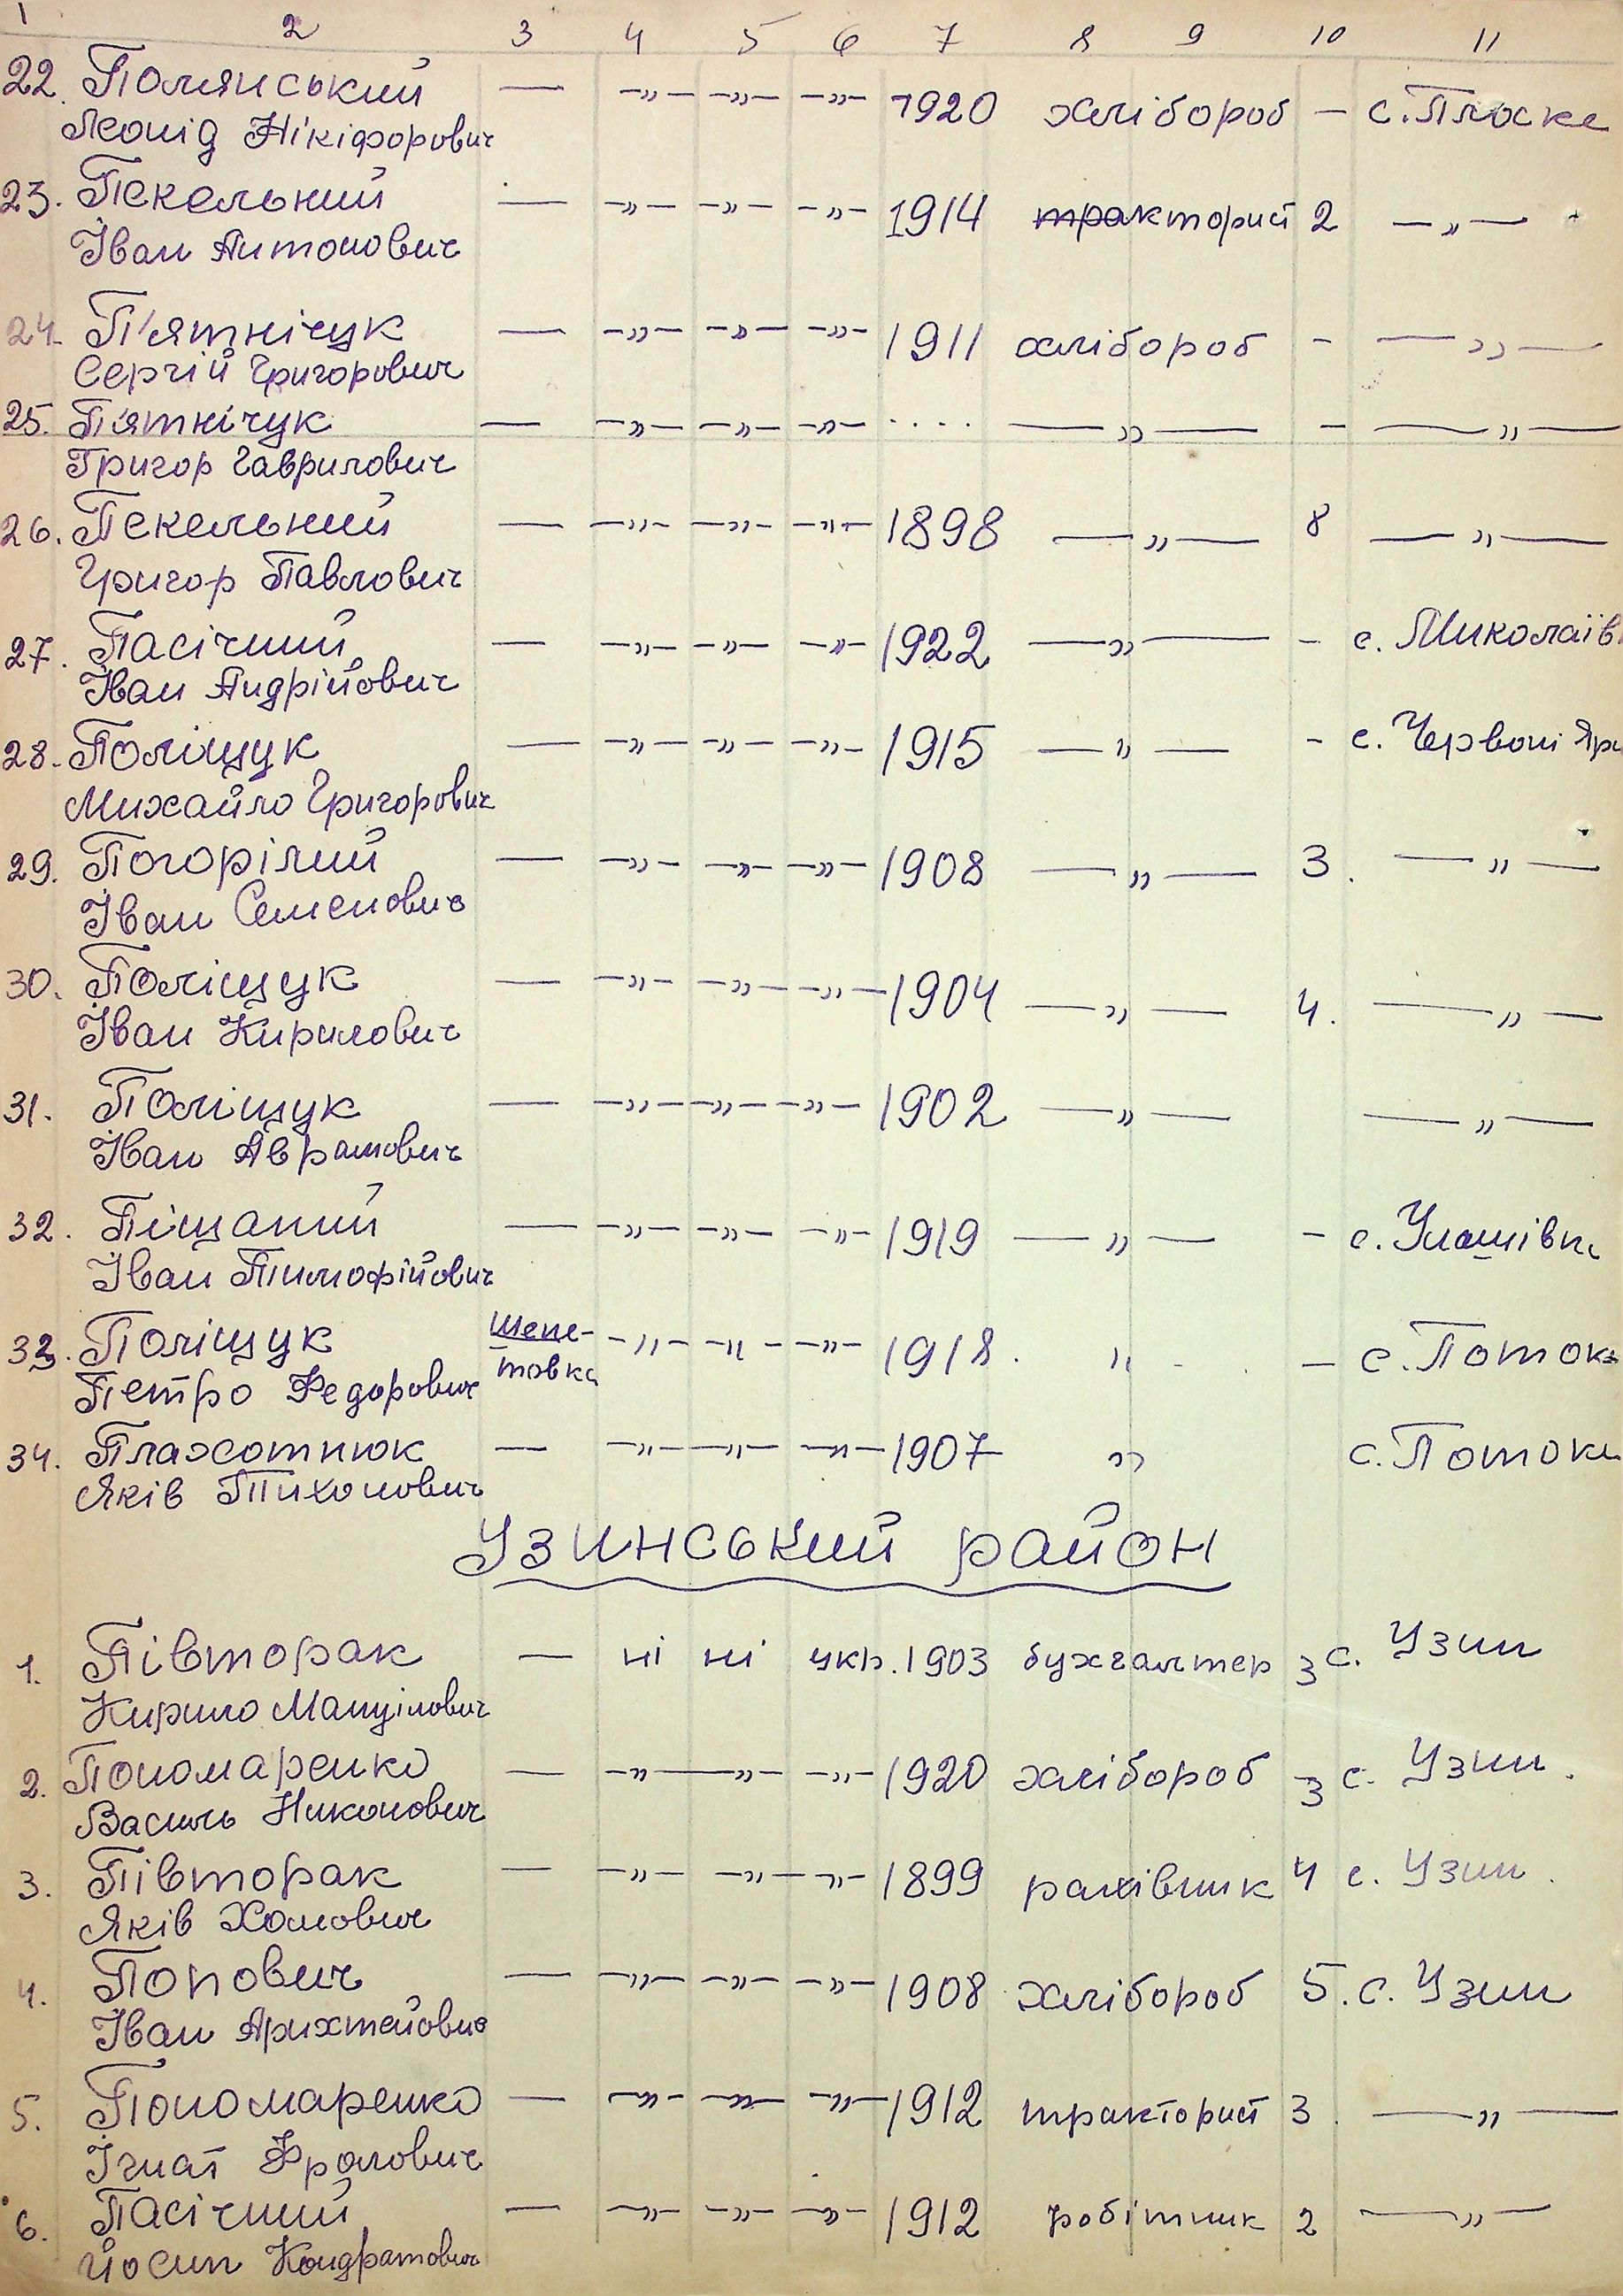 1 2 3 4 5 6 7 8 9 10 11
22. Полянський — –„– –„– –„– 1920 хлібороб – с. Плоске
Леонід Нікіфорович
23. Пекельний — –„– –„– –„– 1914 тракторист 2 –„–
Іван Антонович
24. П'ятнічук — –„– –„– –„– 1911 хлібороб - –„–
Сергій Григорович
25. П'ятнічук — –„– –„– –„– .... –„– – –„–
Григор Гаврилович
26. Пекельний — –„– –„– –„– 1898 –„– 8 –„–
Григор Павлович
27. Пасічний — –„– –„– –„– 1922 –„– - с. Миколаїв
Іван Андрійович
28. Поліщук — –„– –„– –„– 1915 –„– - с. Червоні Яри
Михайло Григорович
29. Погорілий — –„– –„– –„– 1908 –„– 3. –„–
Іван Семенович
30. Поліщук — –„– –„– –„– 1904 –„– 4. –„–
Іван Кирилович
31. Поліщук — –„– –„– –„– 1902 –„– –„–
Іван Аврамович
32. Піщаний — –„– –„– –„– 1919 –„– – с. Улашівка
Іван Тимофійович
33. Поліщук Шепе- –„– –„– –„– 1918. „ – с. Потоки
Петро Федорович товка
34. Плахотнюк — –„– –„– –„– 1907 „ с. Потоки
Яків Тихонович
Узинський район
1. Півторак — ні ні укр. 1903 бухгалтер 3 с. Узин
Кирило Мануілович
2. Пономаренко — –„– –„– –„– 1920 хлібороб 3 с. Узин.
Василь Никонович
3. Півторак — –„– –„– –„– 1899 рахівник 4 с. Узин.
Яків Хомович
4. Попович — –„– –„– –„– 1908 хлібороб 5. с. Узин
Іван Арихтейович
5. Пономаренко — –„– –„– –„– 1912 тракторист 3. –„–
Ігнат Фролович
6. Пасічний — –„– –„– –„– 1912 робітник 2 –„–
Йосип Кондратович